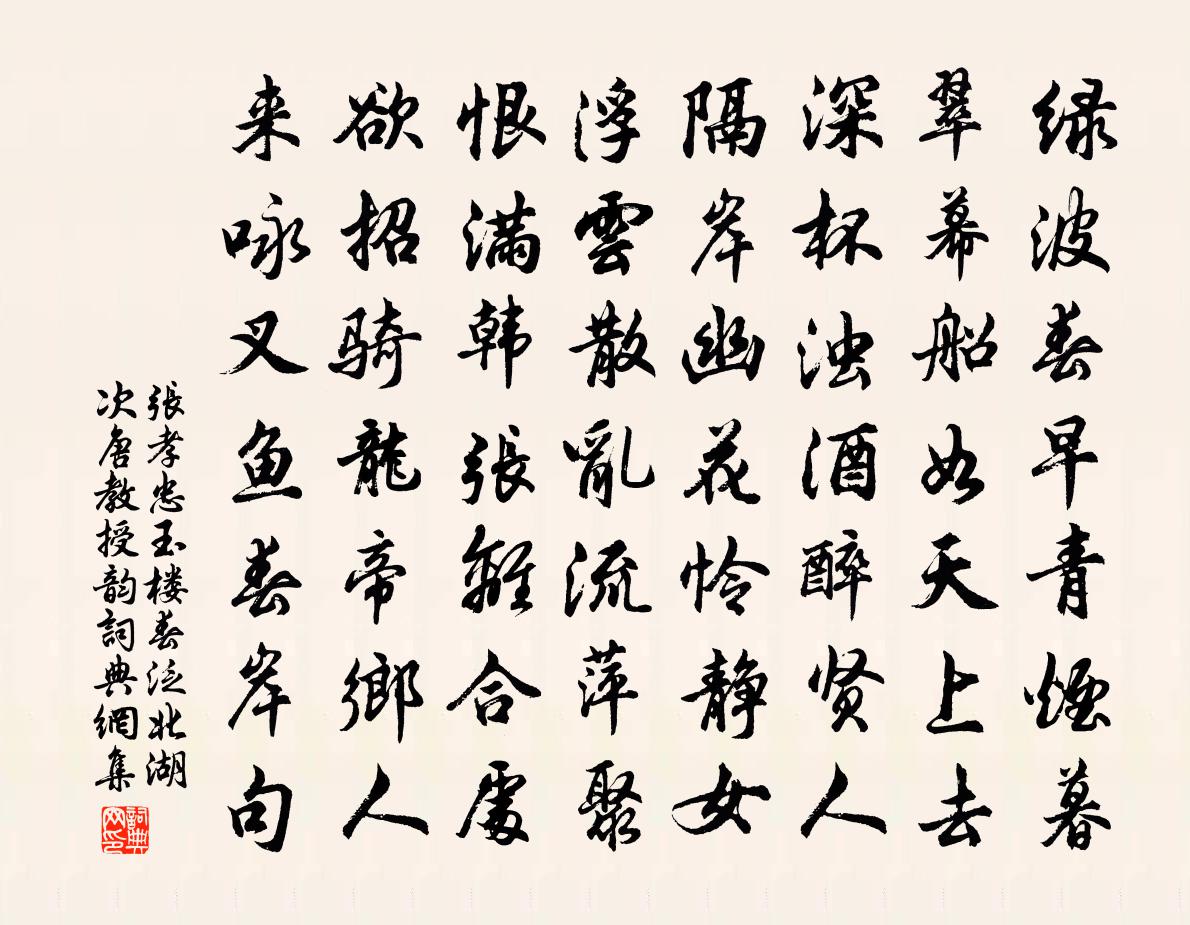 绿波春早青烟暮
翠幕船如天上去
深杯浊酒醉贤人
隔岸幽花怜静女
浮雲散亂流萍聚
恨满韩張離合處
欲招骑龍帝鄉人
来咏叉鱼春岸句
張孝忠玉楼春泛北湖
次唐教授韵詞典網集
詞典網印